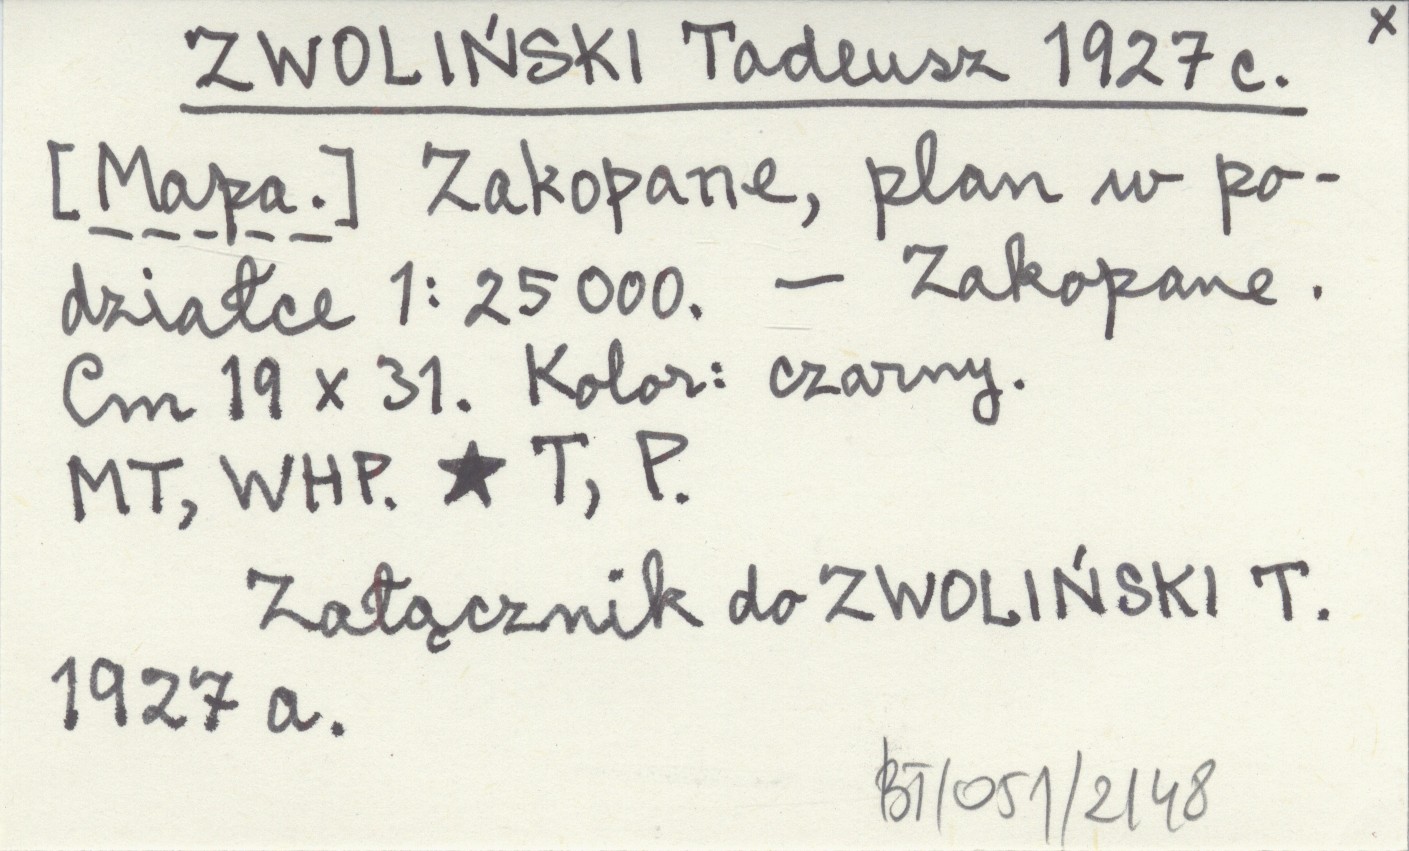 x
ZWOLIŃSKI Tadeusz 1927 c.
[Mapa.] Zakopane, plan w po-
działce 1:25 000. — Zakopane.
Cm 19 x 31. Kolor: czarny.
MT, WHP. ★ T, P.
Załącznik do ZWOLIŃSKI T.
1927 a.
BT/051/2148